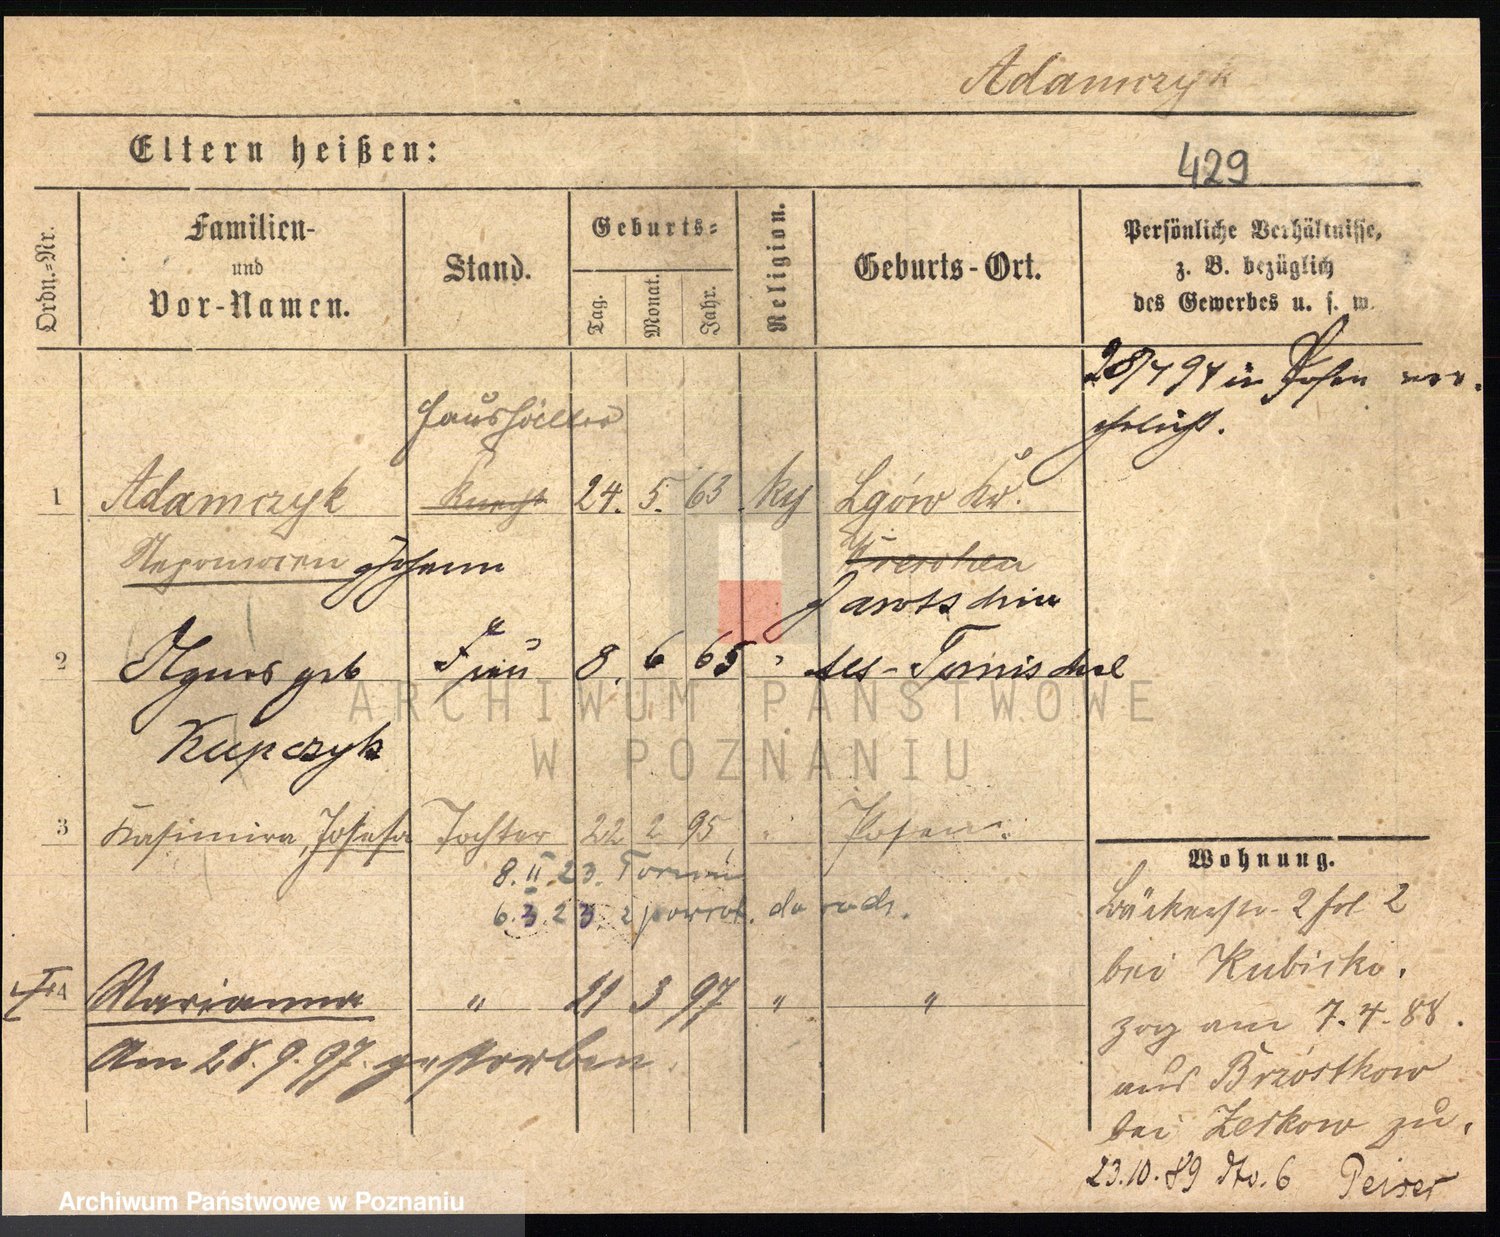 Adamczyk
Eltern heißen:
429
Ordn.=Nr.
Familien-
und
Vor-Namen.
Stand.
Geburts=
Tag.
Monat.
Jahr.
Religion.
Geburts-Ort.
Persönliche Verhältnisse,
z. B. bezüglich
des Gewerbes u. s. w.
28/4 94 in Posen ver-
ehelicht.
Haushälter
1 Adamczyk Knecht 24. 5. 63 kg Lgów Kr.
Nepomucen Johann Wreschen
Jarotschin
2 Agnes geb Frau 8. 6 65 " Alt-Tomischel
Kupczyk
3 Kasimira, Josefa Tochter 22 2 95 " Posen
8. II 23. Toruń
6. 3. 23 z powrot. do rodz.
4 Marianna " 21 3 97 " "
Am 28. 9. 97. gestorben
Wohnung.
Bäckerstr. 2
bei Kubicka.
zog am 7. 4. 88.
aus Brzóstkow
bei Zerkow zu.
23.10.89 No. 6 Peiser
ARCHIWUM PAŃSTWOWE
W POZNANIU
Archiwum Państwowe w Poznaniu